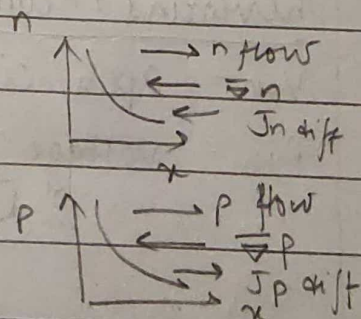 n
→ n flow
← ∇̄ n
← Jn diff
x
p
→ p flow
← ∇̄ p
→ Jp diff
x